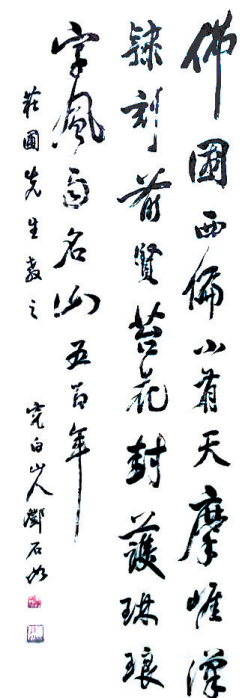 佛國西偏小有天摩崖漢
隸刻前賢苔花封護琳琅
字風雨名山五百年
莊圃先生教之 完白山人鄧石如